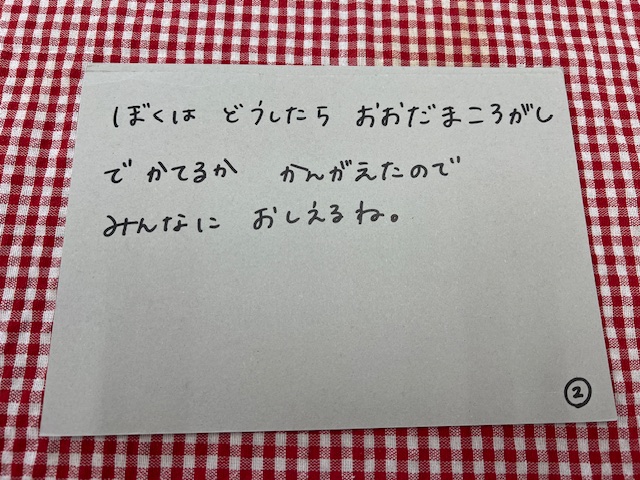 ぼくは どうしたら おおだまころがし
で かてるか かんがえたので
みんなに おしえるね。
②